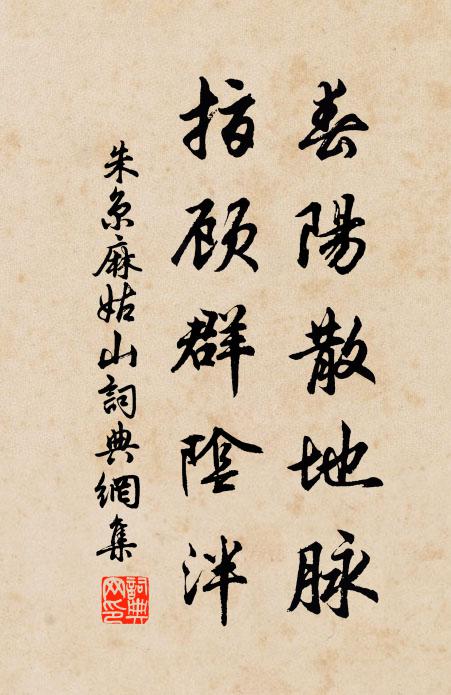 春陽散地脉
指顾群陰泮
朱京麻姑山詞典網集
詞典网印